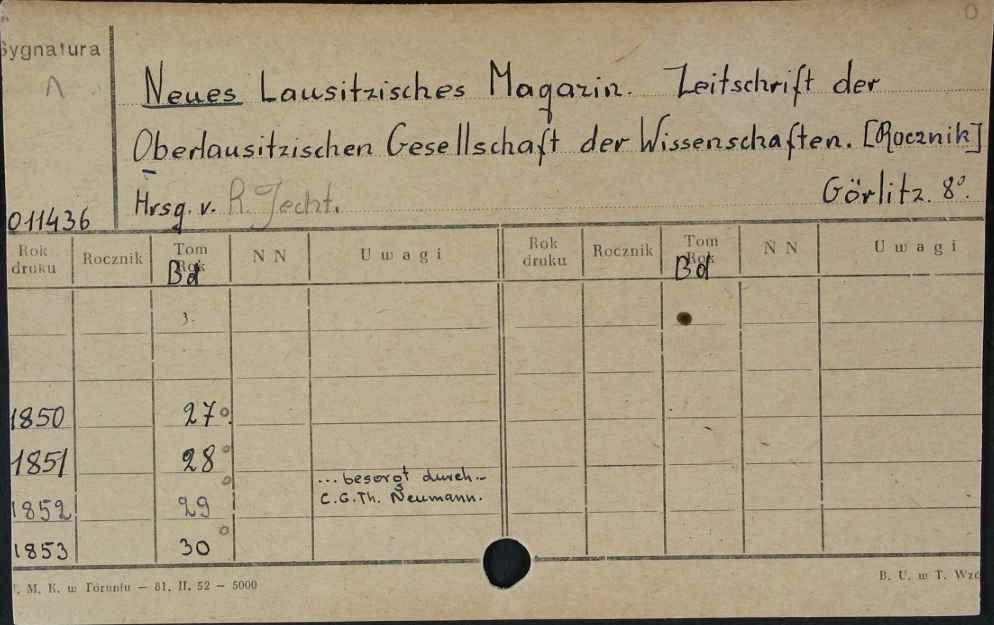 Sygnatura
Neues Lausitzisches Magazin. Zeitschrift der
Oberlausitzischen Gesellschaft der Wissenschaften. [Rocznik]
Hrsg. v. R. Jecht. Görlitz. 8°.
011436
Rok druku Rocznik Tom Rok Bd N N Uwagi Rok druku Rocznik Tom Rok Bd N N Uwagi
1850 27
1851 28
1852 29 ... besorgt durch...
C.G.Th. Neumann.
1853 30
. M. K. w Toruniu — 81. II. 52 — 5000
B. U. w T. Wzó